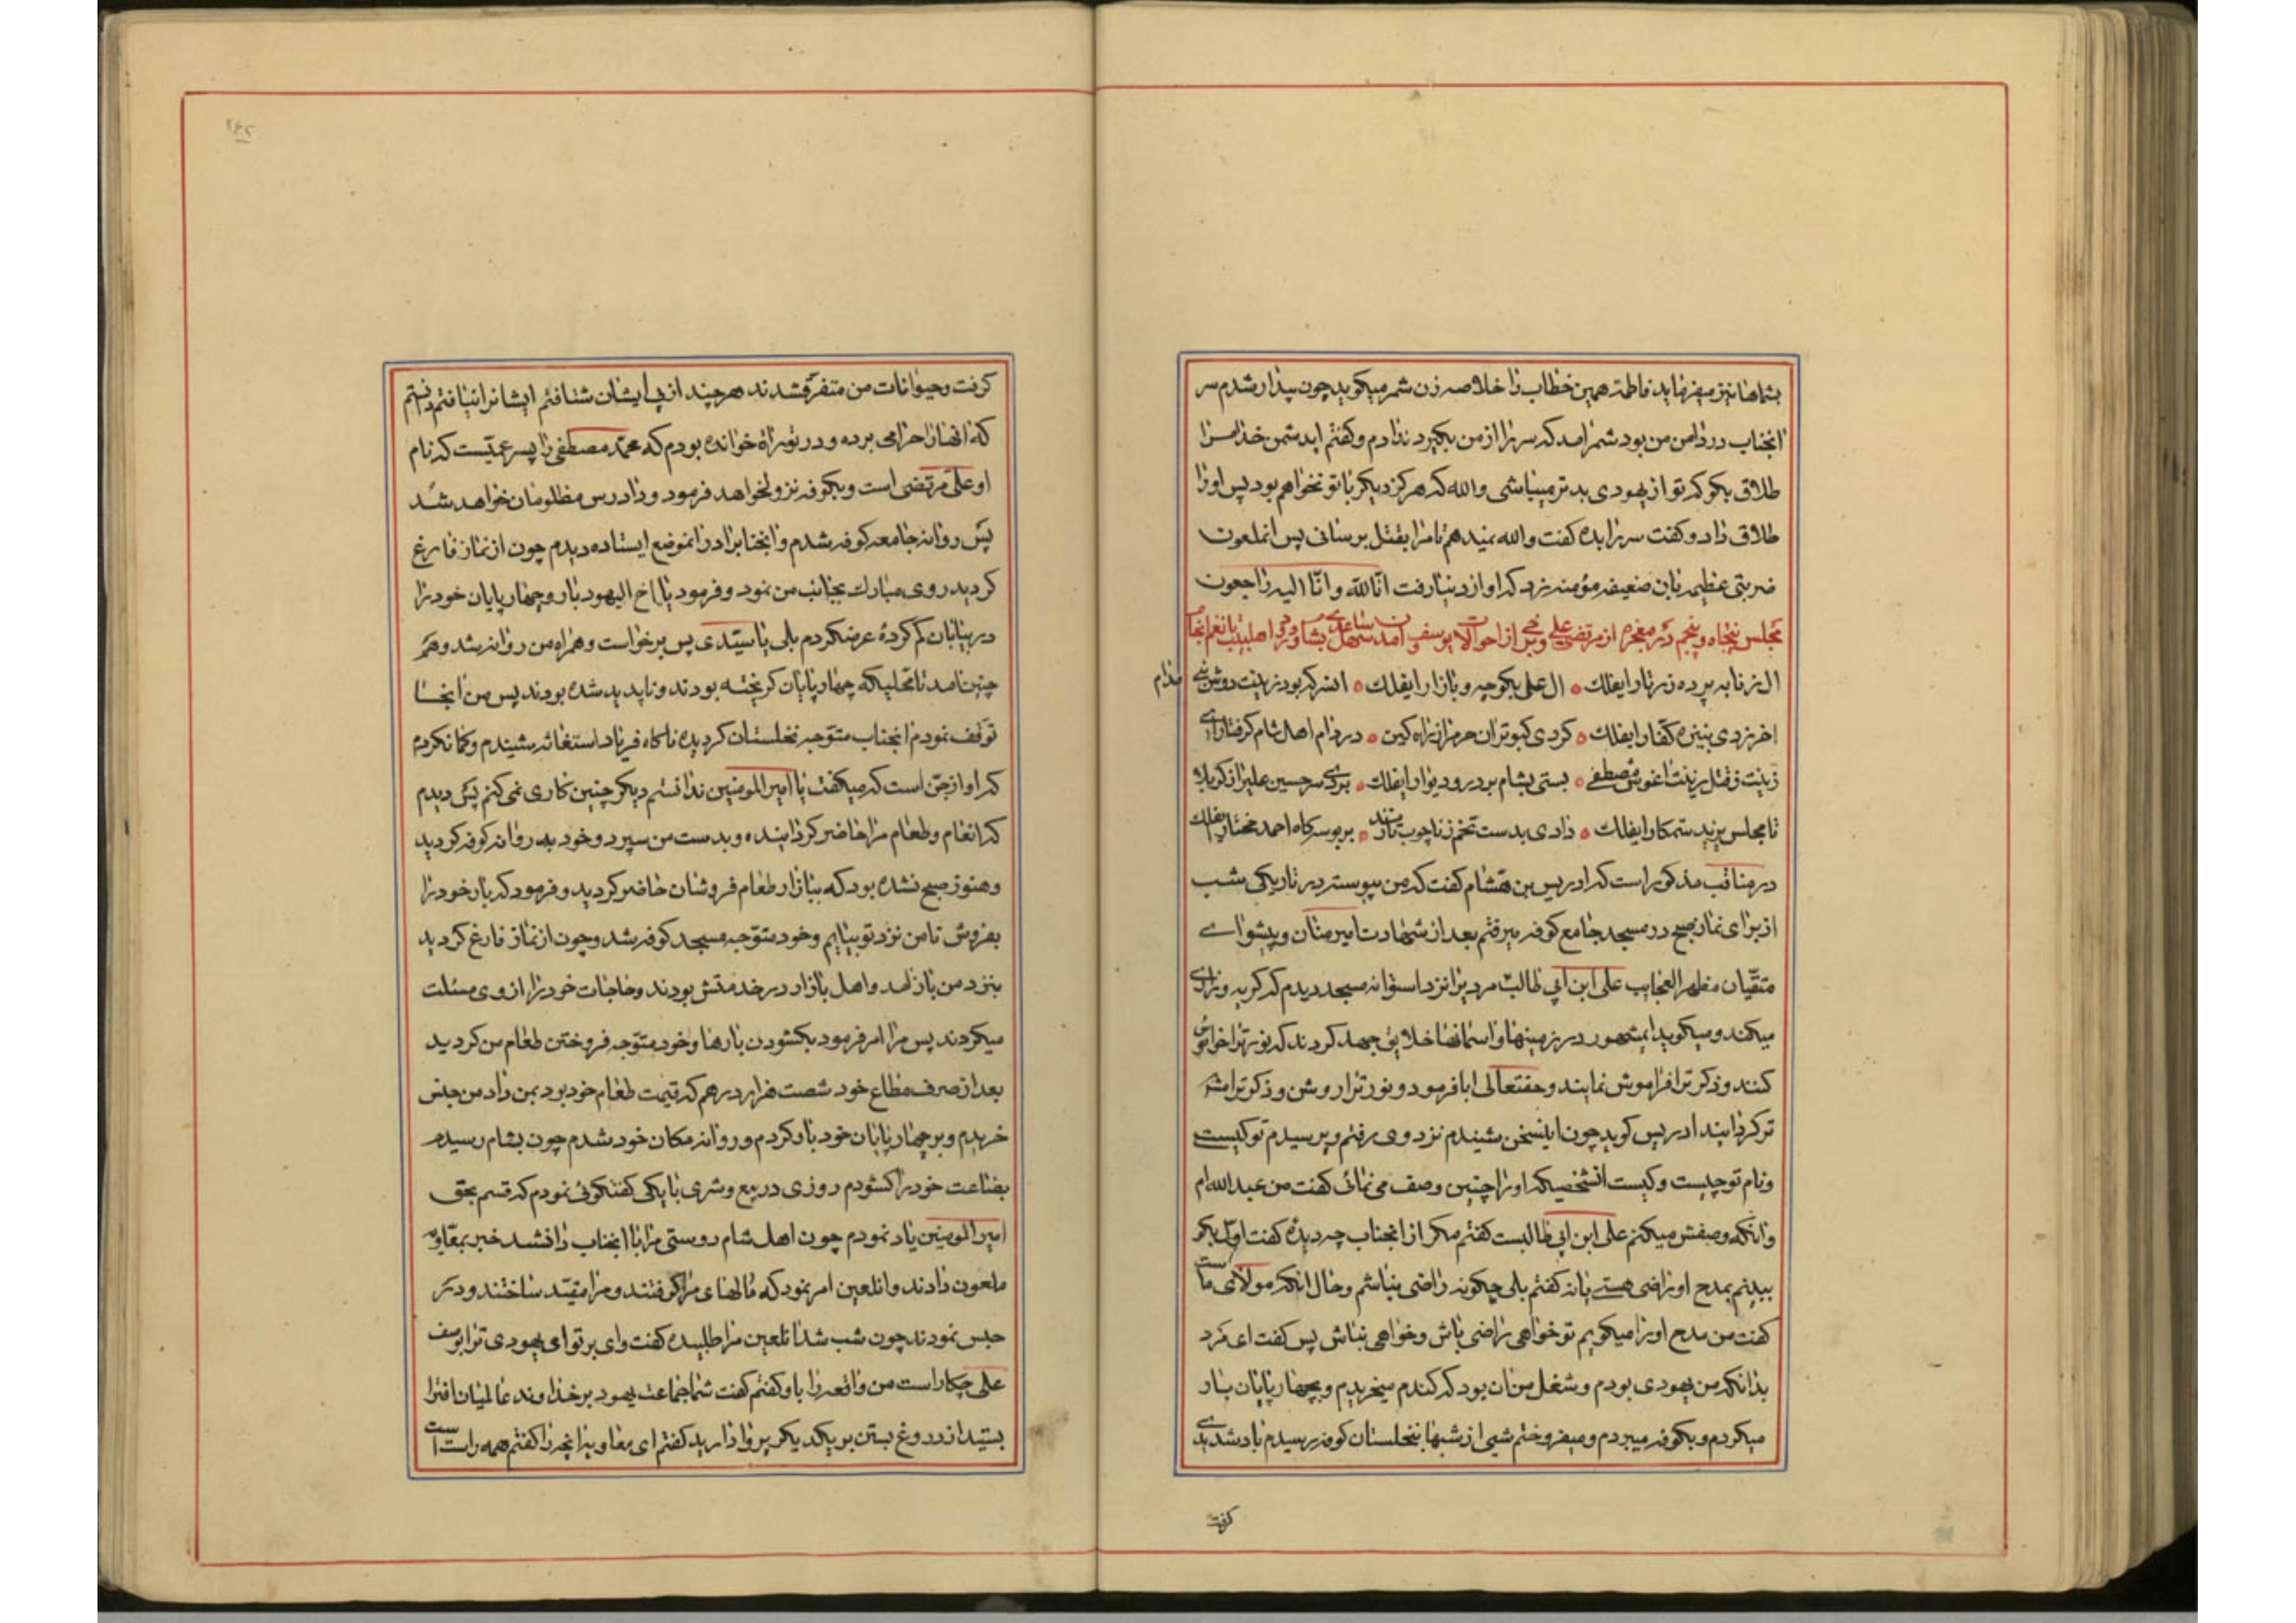 بشماها نیز میفرماید فاطمه همین خطاب را خلاصه زن شمر میکوید چون بیدار شدم سر
انجناب در دامن من بود شمر امد که سر را از من بکیرد ندادم و کفتم ایدشمن خدا مرا
طلاق بکو که تو از یهودی بدتر میباشی والله که هرکز دیکر با تو نخواهم بود پس او را
طلاق داد و کفت سر را بده کفت والله نمیدهم تا مرا بقتل برسانی پس انملعون
ضربتی عظیم بان ضعیفه مؤمنه زد که او از دنیا رفت انّا لله و انّا الیه راجعون
مجلس پنجاه و پنجم در معجزه از مرتضی علی و احوالات یوسف
ال زنا به پرده زرتار ایفلك ال علی بکوچه و بازار ایفلك انسر که بود زینت دوش نبی مدام
اخر زدی بنیزه کفّار ایفلك کردی کبوتران حرم را ز راه کین در دام اهل شام کرفتار ای
زینت ز قتل زینت اغوش مصطفی بستی بشام بر در و دیوار ایفلك بردی سر حسین علیرا ز کربلا
تا مجلس یزید ستمکار ایفلك دادی بدست تخم زنا چوب بر بوسه کاه احمد مختار ایفلك
در مناقب مذکور است که ادریس بن هشام کفت که من پیوسته در تاریکی شب
از برای نماز صبح در مسجد جامع کوفه میرفتم بعد از شهادت امیر منان و پیشوای
متقّیان مظهر العجایب علی ابن ابی طالب مردیرا نزد استوانه مسجد دیدم که کریه و زاری
میکند و میکوید ایمشهور در زمینها و اسمانها خلایق جهد کردند که نور ترا خاموش
کنند و ذکر ترا فراموش نمایند و حقتعالی ابا فرمود و نور ترا روشن و ذکر ترا مشهو
تر کردانید ادریس کوید چون اینسخن شنیدم نزد وی رفتم و پرسیدم تو کیستی
و نام تو چیست و کیست انشخصیکه او را چنین وصف می نمائی کفت من عبد الله ام
و انکه وصفش میکنم علی ابن ابی طالبست کفتم مکر از انجناب چه دیدهٔ کفت اوّل بکو
ببینم بمدح او راضی هستی یا نه کفتم بلی چکونه راضی نباشم و حال انکه مولای ماست
کفت من مدح او را میکویم تو خواهی راضی باش و خواهی نباش پس کفت ای مرد
بدانکه من یهودی بودم و شغل من ان بود که کندم میخریدم و بچهارپایان بار
میکردم و بکوفه میبردم و میفروختم شبی از شبها بنخلستان کوفه رسیدم باد شدیدی
کرفت
کرفت و حیوانات من متفرّق شدند هرچند از پی ایشان شتافتم ایشانرا نیافتم دانستم
که انها را حرامی برده و در توراة خوانده بودم که محمّد مصطفی را پسر عمّیست که نام
او علی مرتضی است و بکوفه نزول خواهد فرمود و دادرس مظلومان خواهد شد
پس روانه جامعه کوفه شدم و انجنابرا در انموضع ایستاده دیدم چون از نماز فارغ
کردید روی مبارك بجانب من نمود و فرمود یا اخ الیهود بار و چهارپایان خود را
در بیابان کم کردهٔ عرض کردم بلی یا سیّدی پس برخواست و همراه من روانه شد و هم
چنین امد تا محلیکه چهارپایان کریخته بودند و ناپدید شده بودند پس من انجا
توقّف نمودم انجناب متوّجه نخلستان کردیده ناکاه فریاد استغاثه شنیدم و کمان کردم
که اواز جّن است که میکفت یا امیر المومنین ندانستم دیکر چنین کاری نمی کنم پس دیدم
که انعام و طعام مرا حاضر کردانیده و بدست من سپرد و خود بدر روانه کوفه کردید
و هنوز صبح نشده بود که ببازار طعام فروشان حاضر کردید و فرمود که بار خود را
بفروش تا من نزد تو بیایم و خود متوّجه مسجد کوفه شد و چون از نماز فارغ کردید
بنزد من باز امد و اهل بازار در خدمتش بودند و حاجات خود را از وی مسئلت
میکردند پس مرا امر فرمود بکشودن بارها و خود متوّجه فروختن طعام من کردید
بعد از صرف مطاع خود شصت هزار درهم که قیمت طعام خود بود بمن داد من جنس
خریدم و بر چهارپایان خود بار کردم و روانه مکان خود شدم چون بشام رسیدم
بضاعت خود را کشودم روزی در بیع و شری با یکی کفتکوئی نمودم که قسم بحق
امیر المومنین یاد نمودم چون اهل شام دوستی مرا با انجناب دانشد خبر بمعاویه
ملعون دادند و انلعین امر نمود که مالهای مرا کرفتند و مرا مقیّد ساختند و در
حبس نمودند چون شب شد انلعین مرا طلبیده کفت وای بر تو ای یهودی ترا بوصف
علی چکار است من واقعه را باو کفتم کفت شما جماعت یهود بر خداوند عالمیان افترا
بستید از دروغ بستن بر یکدیکر پروا دارید کفتم ای معاویه انچه را کفتم همه راست است